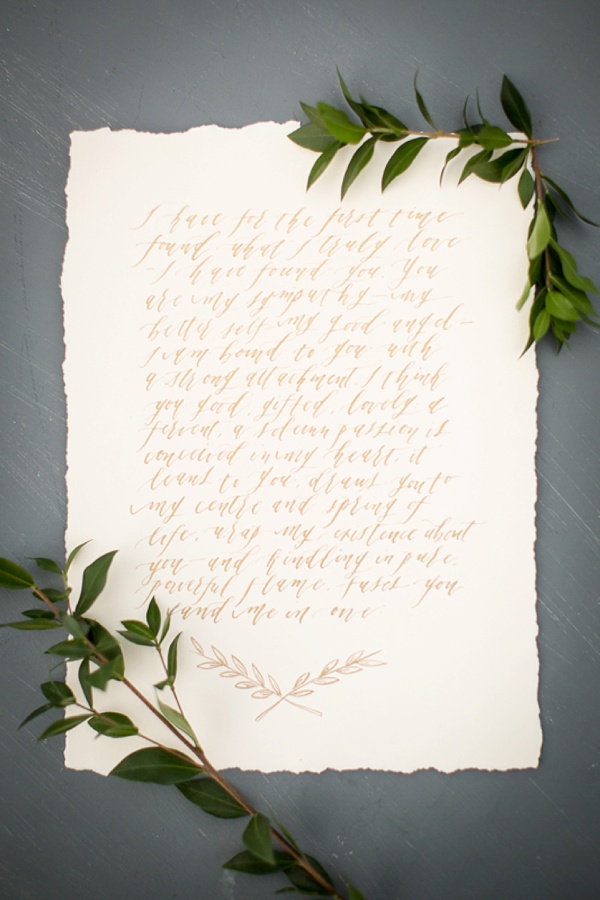 I have for the first time
found what I truly love
- I have found you. You
are my sympathy - my
better self my good angel -
I am bound to you with
a strong attachment. I think
you good, gifted, lovely a
fervent, a solemn passion is
conceived in my heart, it
leans to you, draws you to
my centre and spring of
life, wrap my existence about
you - and kindling in pure,
powerful flame, fuses you
and me in one.